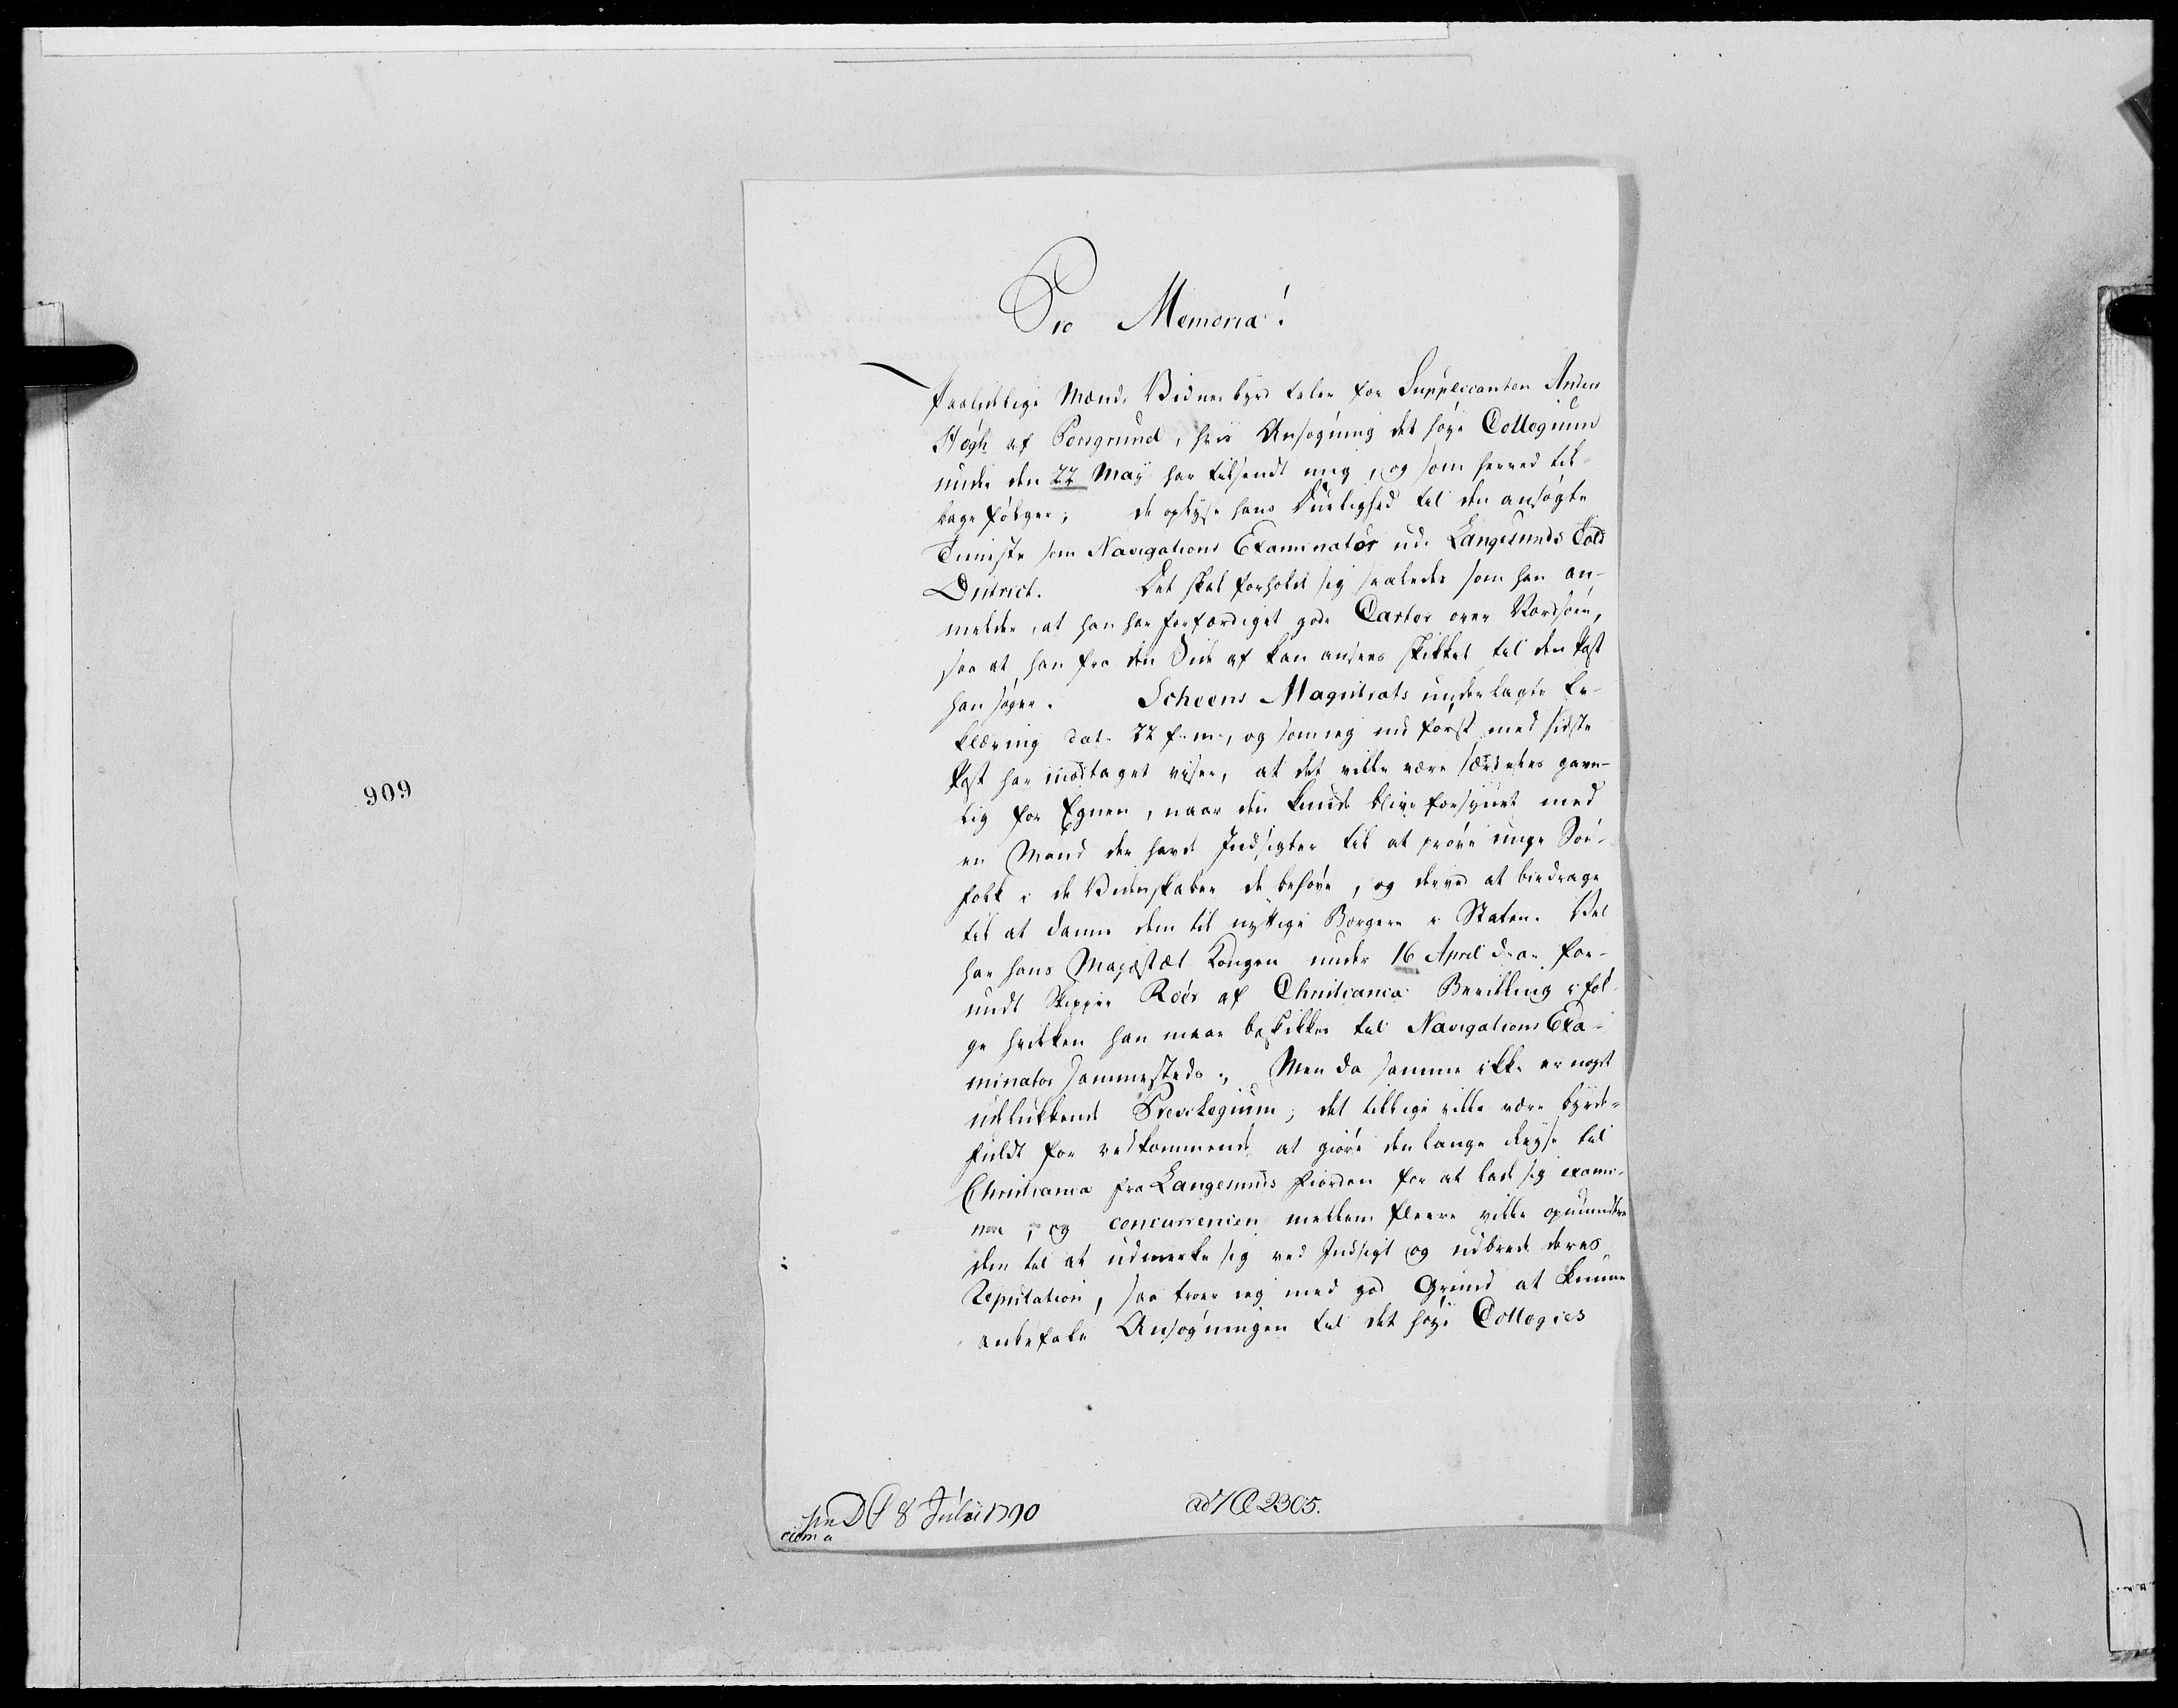 Pro Memoria!
Paalidelige Mænds Vidnesbyrd taler for Supplicanten Anders
Høgh af Porsgrund, hvis Ansøgning det høye Collegium
under den 22 May har tilsendt mig, og som herved til-
bage følger; de oplyse hans Duelighed til den ansøgte
Tieneste som Navigations Examinator udi Langesunds Told
District. Det skal forholde sig saaledes som han an-
melder, at han har forfærdiget gode Carter over Nordsøen,
saa at han fra den Side af kan ansees skikket til den Post
han søger. Scheens Magistrats underlagte Er-
klæring dat. 22 f. m., og som ieg nu først med sidste
Post har modtaget viser, at det ville være særdeles gavn-
lig for Egnen, naar den kunde blive forsynet med
en Mand der havde Indsigter til at prøve unge Søe-
folk i de Videnskaber de behøve, og derved at bidrage
til at danne dem til nyttige Borgere i Staten. Vel
har Hans Majestæt Kongen under 16 April d. a. for-
undt Skipper Roör af Christiania Bevilling i føl-
ge hvilken han maae beskikkes til Navigations Exa-
minator sammesteds. Men da samme ikke er noget
udelukkende Privilegium; det tillige ville være byrde-
fuldt for vedkommende at giøre den lange Reyse til
Christiania fra Langesunds Fiorden for at lade sig exami-
nere; og concurrencen mellem fleere ville opmuntre
dem til at udmerke sig ved Indsigt og udbrede deres
Reputation, saa troer ieg med god Grund at kunne
anbefale Ansøgningen til det høye Collegies
8 Julii 1790
ad 2305.
909